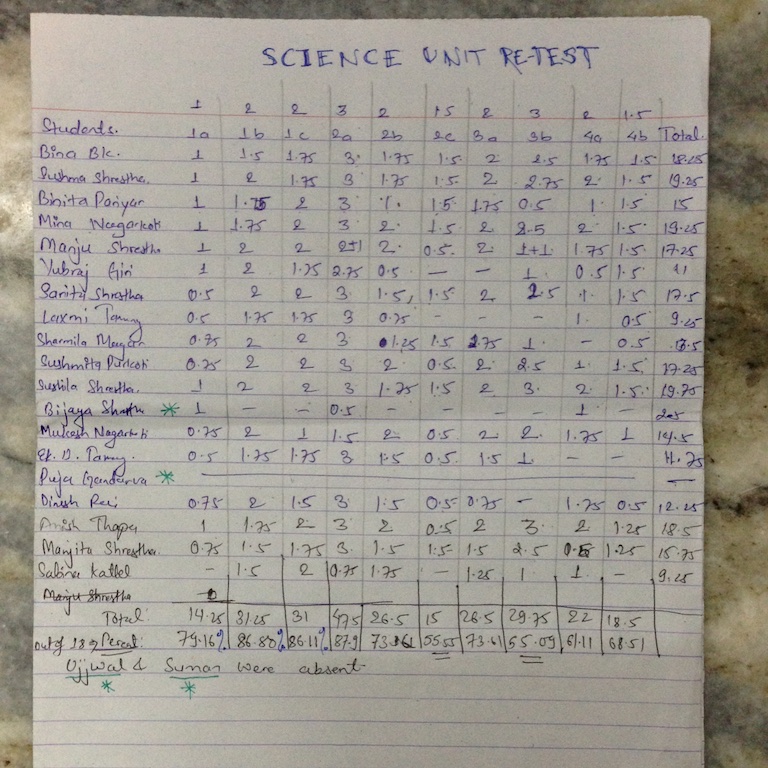 SCIENCE UNIT RE-TEST
1 2 2 3 2 1.5 2 3 2 1.5
Students. 1a 1b 1c 2a 2b 2c 3a 3b 4a 4b Total.
Bina Bk. 1 1.5 1.75 3. 1.75 1.5. 2 2.5 1.75 1.5 18.25
Sushma Shrestha. 1 2 1.75 3 1.75 1.5. 2 2.75 2. 1.5 19.25
Binita Pariyar 1 1.75 2 3 1. 1.5. 1.75 0.5 1. 1.5 15
Mina Nagarkoti 1 1.75 2 3 2. 1.5 2 2.5 2 1.5. 19.25
Manju Shrestha 1 2 2 2+1 2. 0.5. 2. 1+1 1.75 1.5. 17.25
Yubraj Giri 1 2 1.75 2.75 0.5 — — 1. 0.5 1.5 11
Sarita Shrestha 0.5 2 2 3. 1.5, 1.5 2 2.5 1. 1.5 17.5
Laxmi Tamang 0.5 1.75 1.75 3 0.75 - - - 1. 0.5 9.25
Sharmila Magar 0.75 2 2 3 1.25 1.5 1. - 0.5
Sushmita Purkoti 0.75 2 2 3 2 0.5. 2. 2.5 1. 1.5. 17.25
Sushila Shrestha. 1 2 2 3 1.75 1.5 2 3. 2. 1.5. 19.75
Bijaya Shrestha * 1 — — 0.5 - - - - 1 —
Mukesh Nagarkoti 0.75 2 1 1.5 2 0.5 2 2. 1.75 1 14.5
D. Tamang. 0.5 1.75 1.75 3 1.5 0.5. 1.5 1. — — 11.75
Puja Gandarva * —
Dinesh Rai 0.75 2 1.5 3. 1.5 0.5 0.75 - 1.75 0.5 12.25
Anish Thapa 1 1.75 2 3 2 0.5 2 3. 2 1.25 18.5
Manjita Shrestha. 0.75 1.5 1.75 3. 1.5 1.5 1.5 2.5 1.25 15.75
Sabina Kattel - 1.5 2 0.75 1.75 — 1.25 1 1. — 9.25
Manju Shrestha
Total: 14.25 31.25 31 47.5 26.5 15 26.5 29.75 22 18.5
out of 18 Percent: 79.16% 86.80% 86.11% 87.9 73.61 55.55 73.61 55.09 61.11 68.51
Ujjwal & Suman were absent
* *